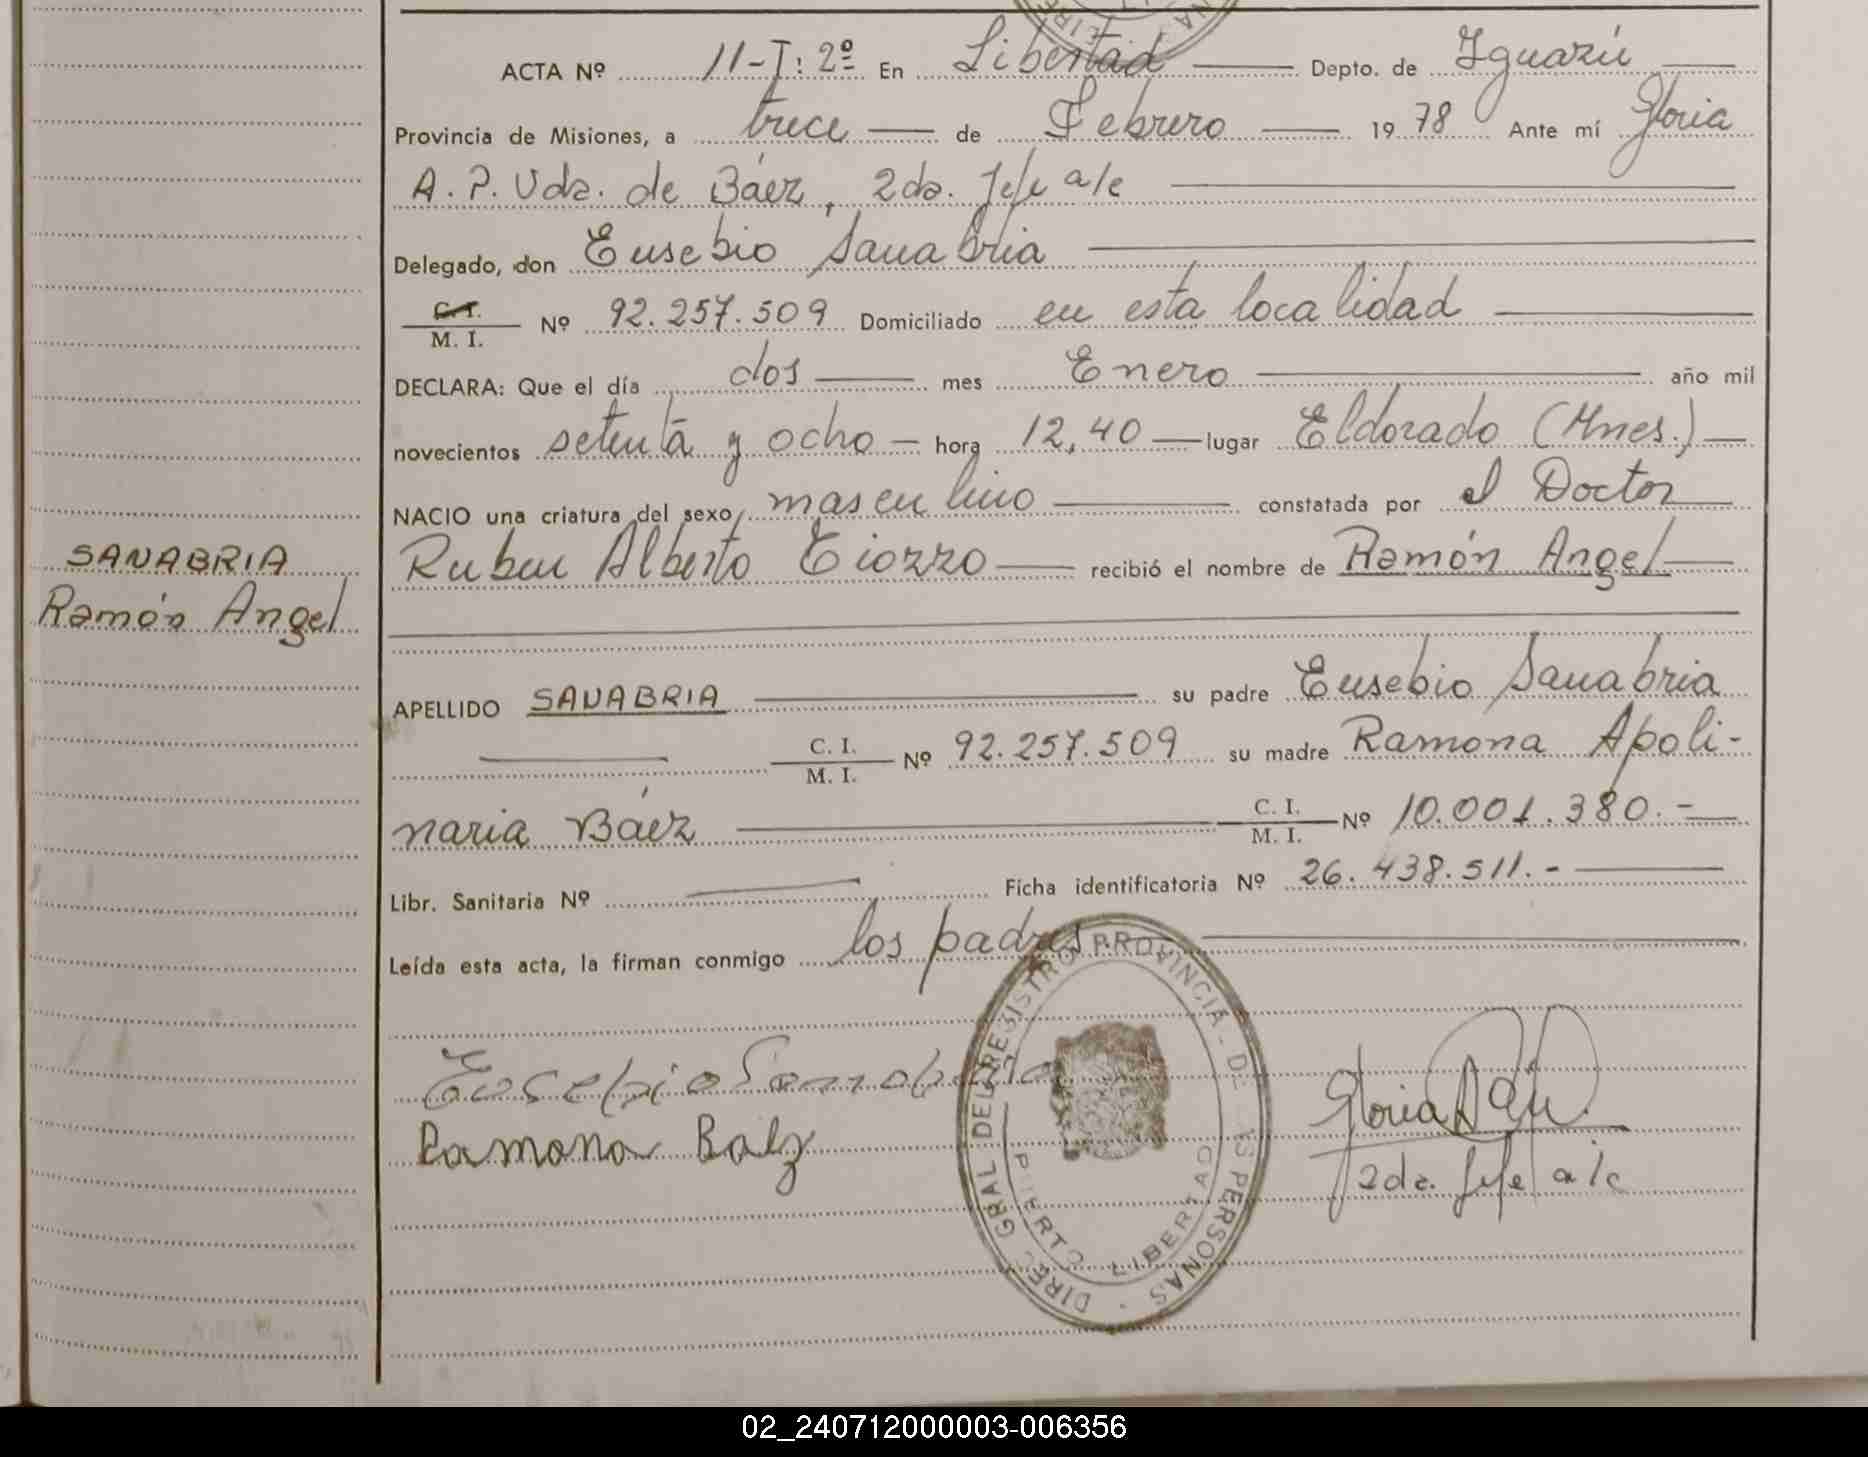 ACTA Nº 11-T: 2º En Libertad Depto. de Iguazú
Provincia de Misiones, a trece de Febrero 1978 Ante mí Gloria
A. P. Vda. de Báez, 2da. Jefe a/c
Delegado, don Eusebio Sanabria
C. I.
M. I. Nº 92.257.509 Domiciliado en esta localidad
DECLARA: Que el día dos mes Enero año mil
novecientos setenta y ocho - hora 12,40 lugar Eldorado (Mnes.)
NACIO una criatura del sexo masculino constatada por el Doctor
SANABRIA
Ruben Alberto Tiozzo recibió el nombre de Ramón Angel
Ramón Angel
APELLIDO SANABRIA su padre Eusebio Sanabria
C. I.
M. I. Nº 92.257.509 su madre Ramona Apoli-
naria Báez C. I.
M. I. Nº 10.001.380.-
Libr. Sanitaria Nº Ficha identificatoria Nº 26.438.511.-
Leída esta acta, la firman conmigo los padres
Eusebio Sanabria
Ramona Baez
Gloria
2da. Jefe a/c
DIREC. GRAL DEL REGISTRO PROVINCIAL DE LAS PERSONAS
PUERTO LIBERTAD
02_240712000003-006356